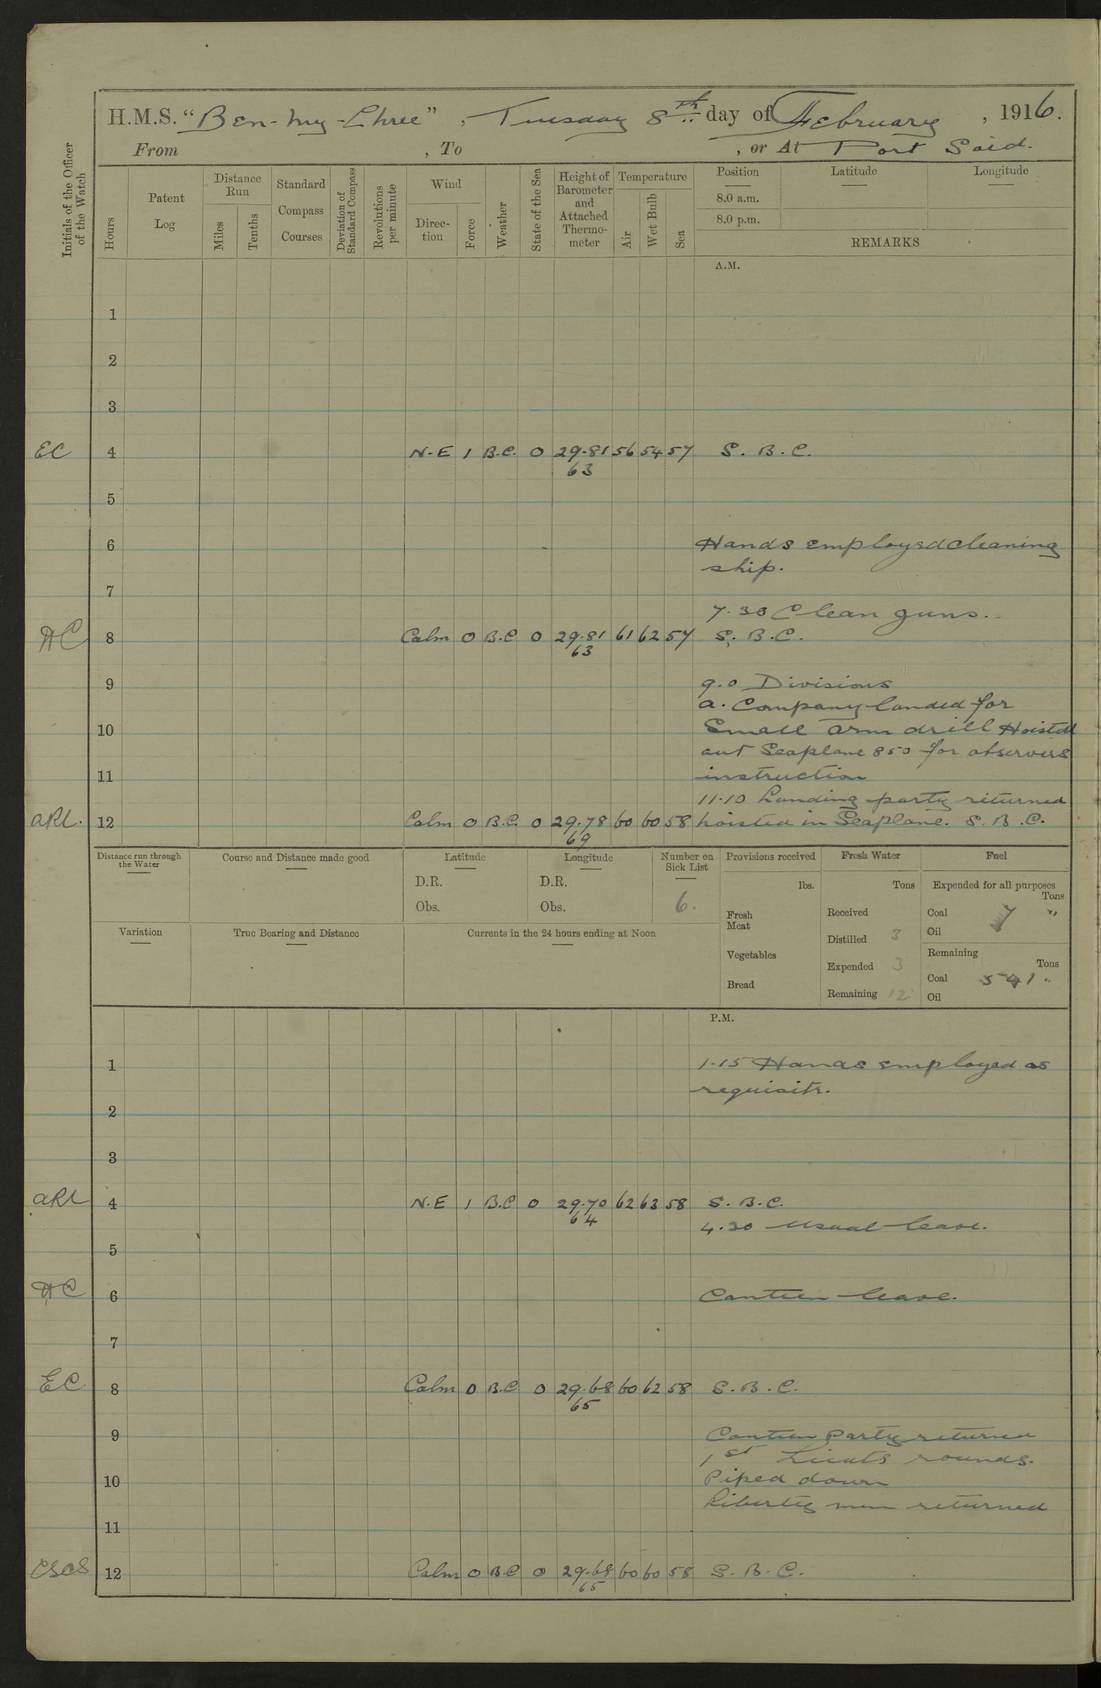 H.M.S. "Ben-my-Chree", Tuesday 8th day of February, 1916.
From , To , or At Port Said.
Initials of the Officer of the Watch
Hours
Patent Log
Distance Run
Miles
Tenths
Standard Compass Courses
Deviation of Standard Compass
Revolutions per minute
Wind
Direction
Force
Weather
State of the Sea
Height of Barometer and Attached Thermometer
Temperature
Air
Wet Bulb
Sea
Position Latitude Longitude
8.0 a.m.
8.0 p.m.
REMARKS
A.M.
1
2
3
EC 4 N.E 1 B.C. 0 29.81 56 54 57 S. B. C.
63
5
6 Hands employed cleaning
ship.
7
7.30 Clean guns.
AC 8 Calm 0 B.C 0 29.81 61 62 57 S. B. C.
63
9 9.0 Divisions
a. Company landed for
10 Small arm drill Hoisted
out Seaplane 850 for observers
11 instruction
11.10 Landing party returned
ARL. 12 Calm 0 B.C. 0 29.78 60 60 58 hoisted in Seaplane. S. B. C.
69
Distance run through the Water
Course and Distance made good
Latitude
D.R.
Obs.
Longitude
D.R.
Obs.
Number on Sick List
6.
Provisions received
lbs.
Fresh Meat
Vegetables
Bread
Fresh Water
Tons
Received
Distilled 3
Expended 3
Remaining 12
Fuel
Expended for all purposes
Tons
Coal 7 "
Oil
Remaining
Tons
Coal 541 "
Oil
Variation
True Bearing and Distance
Currents in the 24 hours ending at Noon
P.M.
1 1.15 Hands employed as
requisite.
2
3
ARL 4 N.E 1 B.C 0 29.70 62 63 58 S. B. C.
64
4.30 Usual leave.
5
AC 6 Canteen leave.
7
EC 8 Calm 0 B.C 0 29.68 60 62 58 S. B. C.
65
9 Canteen Party returned
1st Lieuts rounds.
10 Piped down
Liberty men returned
11
CSCS 12 Calm 0 B.C 0 29.68 60 60 58 S. B. C.
65